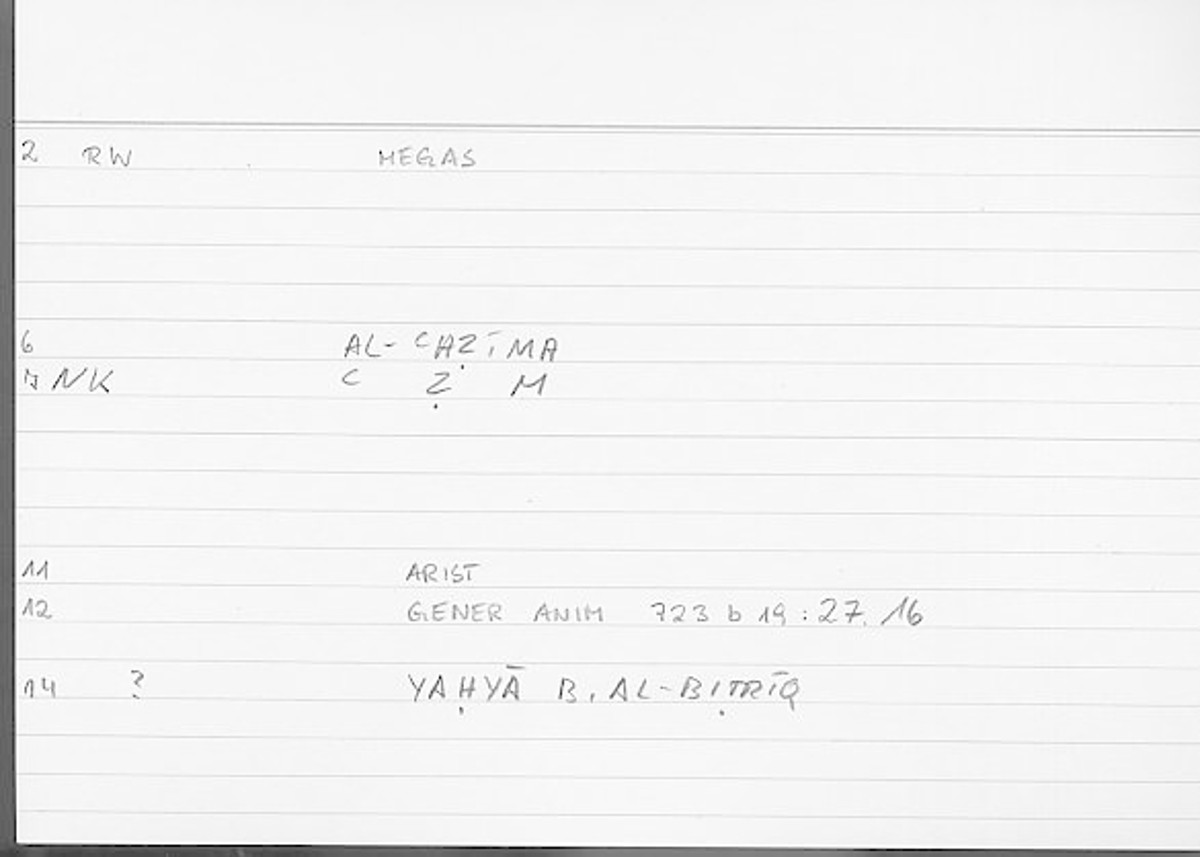 2 RW MEGAS
6 AL-ʿAẒĪMA
7 NK ʿ Ẓ M
11 ARIST
12 GENER ANIM 723 b 19 : 27. 16
14 ? YAḤYĀ B. AL-BIṬRĪQ